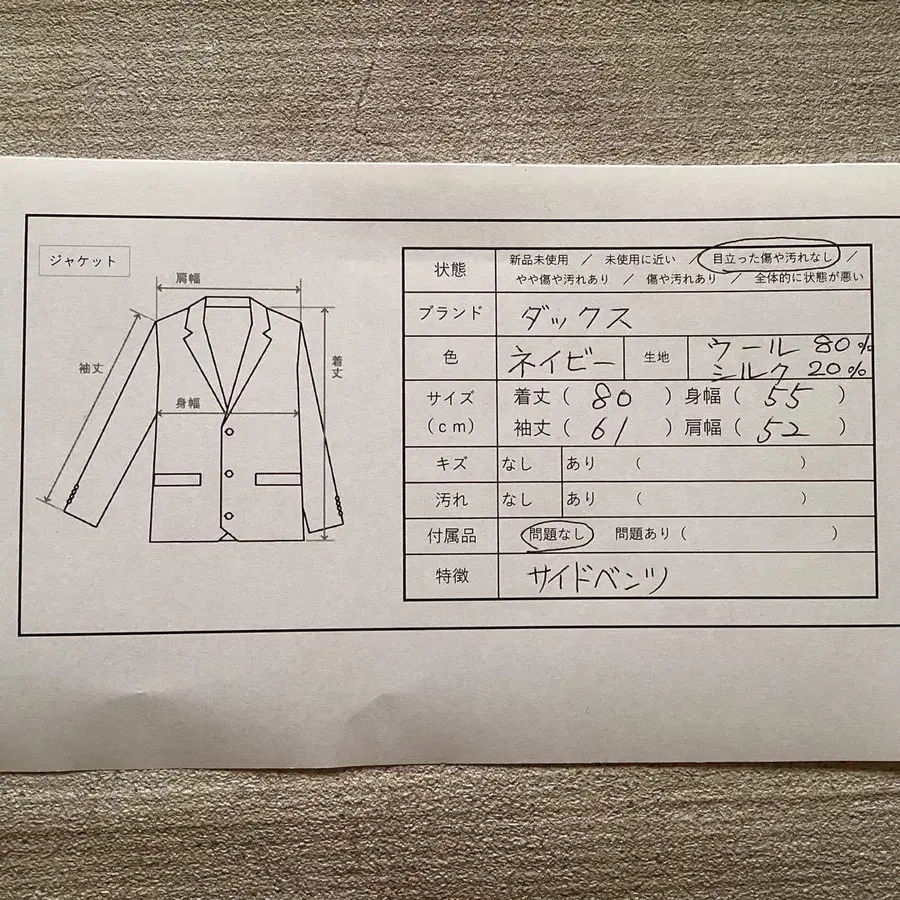 ジャケット
肩幅
袖丈
着丈
身幅
状態 新品未使用 / 未使用に近い / 目立った傷や汚れなし /
やや傷や汚れあり / 傷や汚れあり / 全体的に状態が悪い
ブランド ダックス
色 ネイビー 生地 ウール 80%
シルク 20%
サイズ 着丈 ( 80 ) 身幅 ( 55 )
(cm) 袖丈 ( 61 ) 肩幅 ( 52 )
キズ なし あり ( )
汚れ なし あり ( )
付属品 問題なし 問題あり ( )
特徴 サイドベンツ